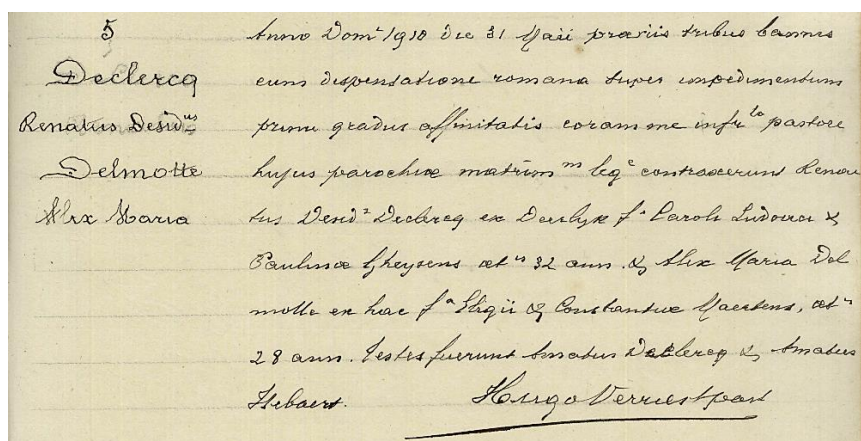 5
Declercq
Renatus Desid<sup>us</sup>
Delmotte
Alix Maria
Anno Dom<sup>i</sup> 1910 die 31 Maii præviis tribus bannis
cum dispensatione romana super impedimentum
primi gradus affinitatis coram me infr<sup>to</sup> pastore
hujus parochiæ matrim<sup>m</sup> leg<sup>e</sup> contraxerunt Rena
tus Desid<sup>s</sup> Declercq ex Deerlyk f<sup>s</sup> Caroli Ludovici &
Paulinæ Gheysens æt<sup>is</sup> 32 ann. & Alix Maria Del
motte ex hac f<sup>a</sup> Eligii & Constantiæ Maertens, æt<sup>is</sup>
28 ann. Testes fuerunt Amatus Declercq & Amatus
Hugo Verriest past